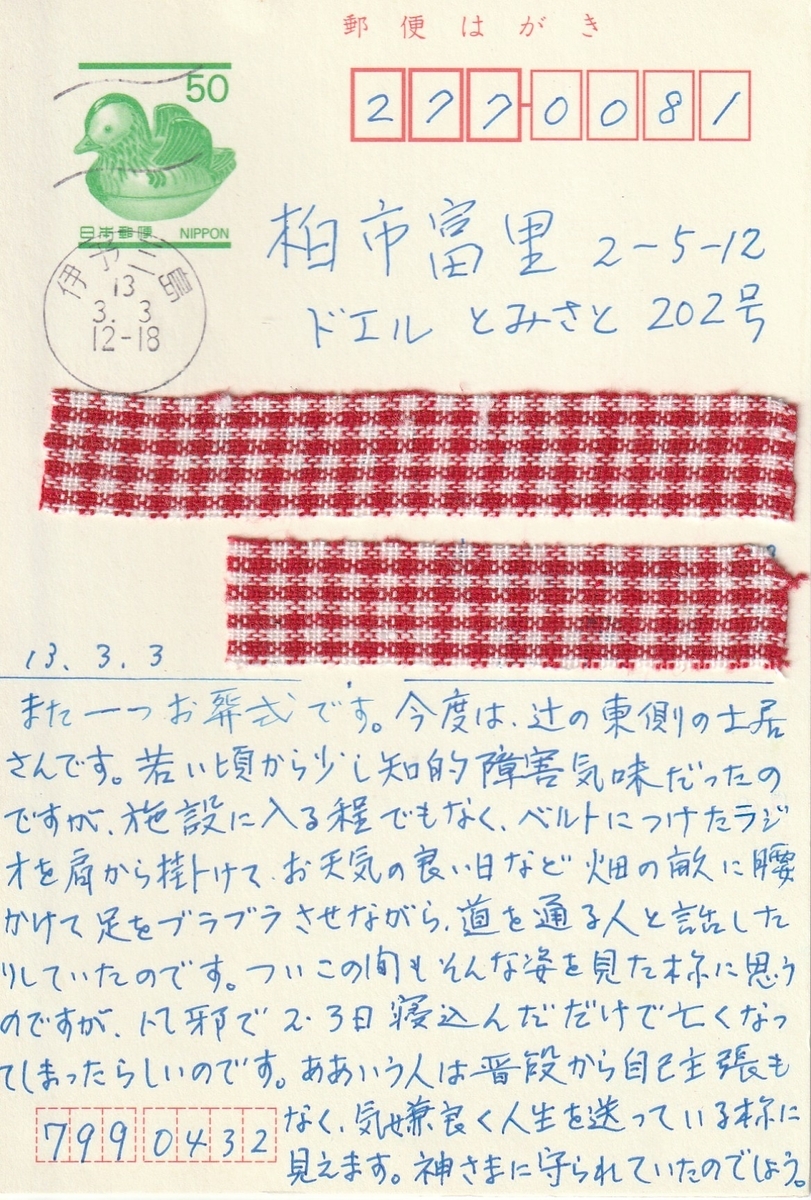 郵便はがき
50
日本郵便 NIPPON
277-0081
伊予三島
13
3. 3
12-18
柏市富里 2-5-12
ドエル とみさと 202号
13. 3. 3
また一つお葬式です。今度は、辻の東側の土居
さんです。若い頃から少し知的障害気味だったの
ですが、施設に入る程でもなく、ベルトにつけたラジ
オを肩から掛けて、お天気の良い日など畑の畝に腰
かけて足をブラブラさせながら、道を通る人と話した
りしていたのです。ついこの間もそんな姿を見た様に思う
のですが、風邪で2・3日寝込んだだけで亡くなっ
てしまったらしいのです。ああいう人は普段から自己主張も
なく、気嫌良く人生を送っている様に
見えます。神さまに守られていたのでしょう。
7990432